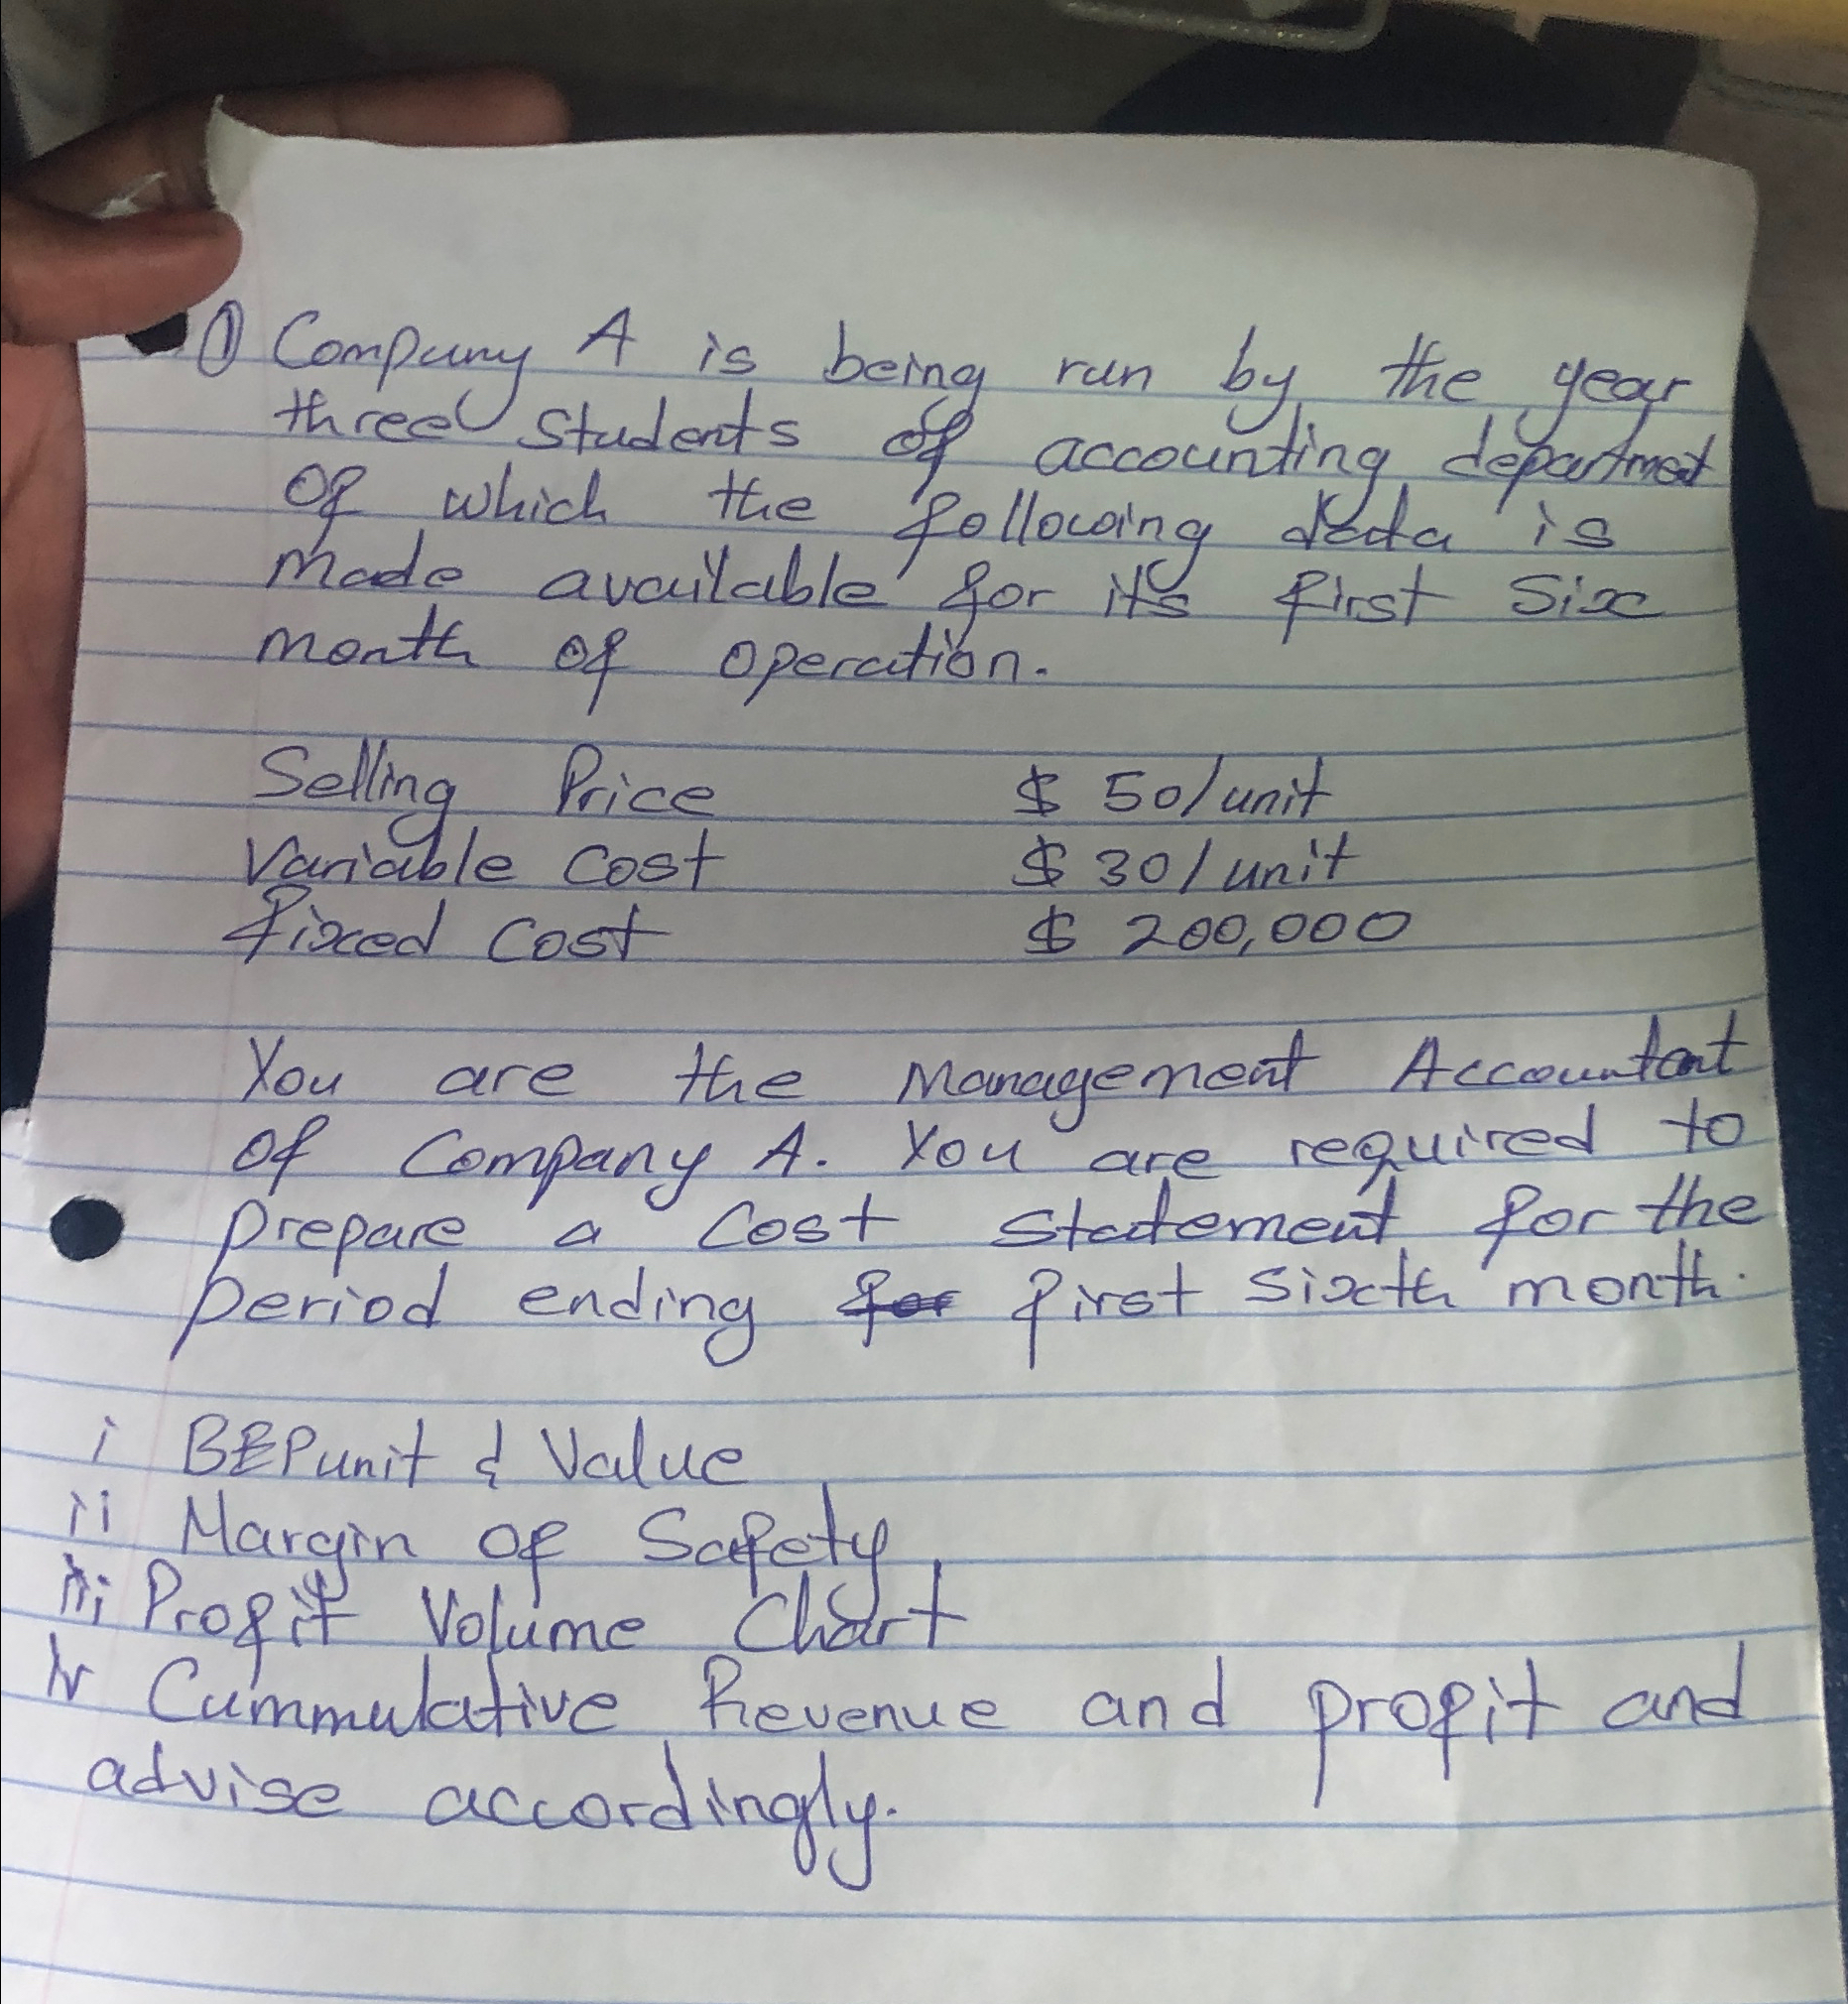 ① Company A is being run by the year
three students of accounting department
of which the following data is
made available for its first six
month of operation.
Selling Price $ 50/unit
Variable Cost $ 30/unit
fixed Cost $ 200,000
You are the Management Accountant
of Company A. You are required to
prepare a Cost statement for the
period ending for first sixth month.
i BEPunit & Value
ii Margin of Safety
iii Profit Volume Chart
iv Cummulative Revenue and profit and
advise accordingly.